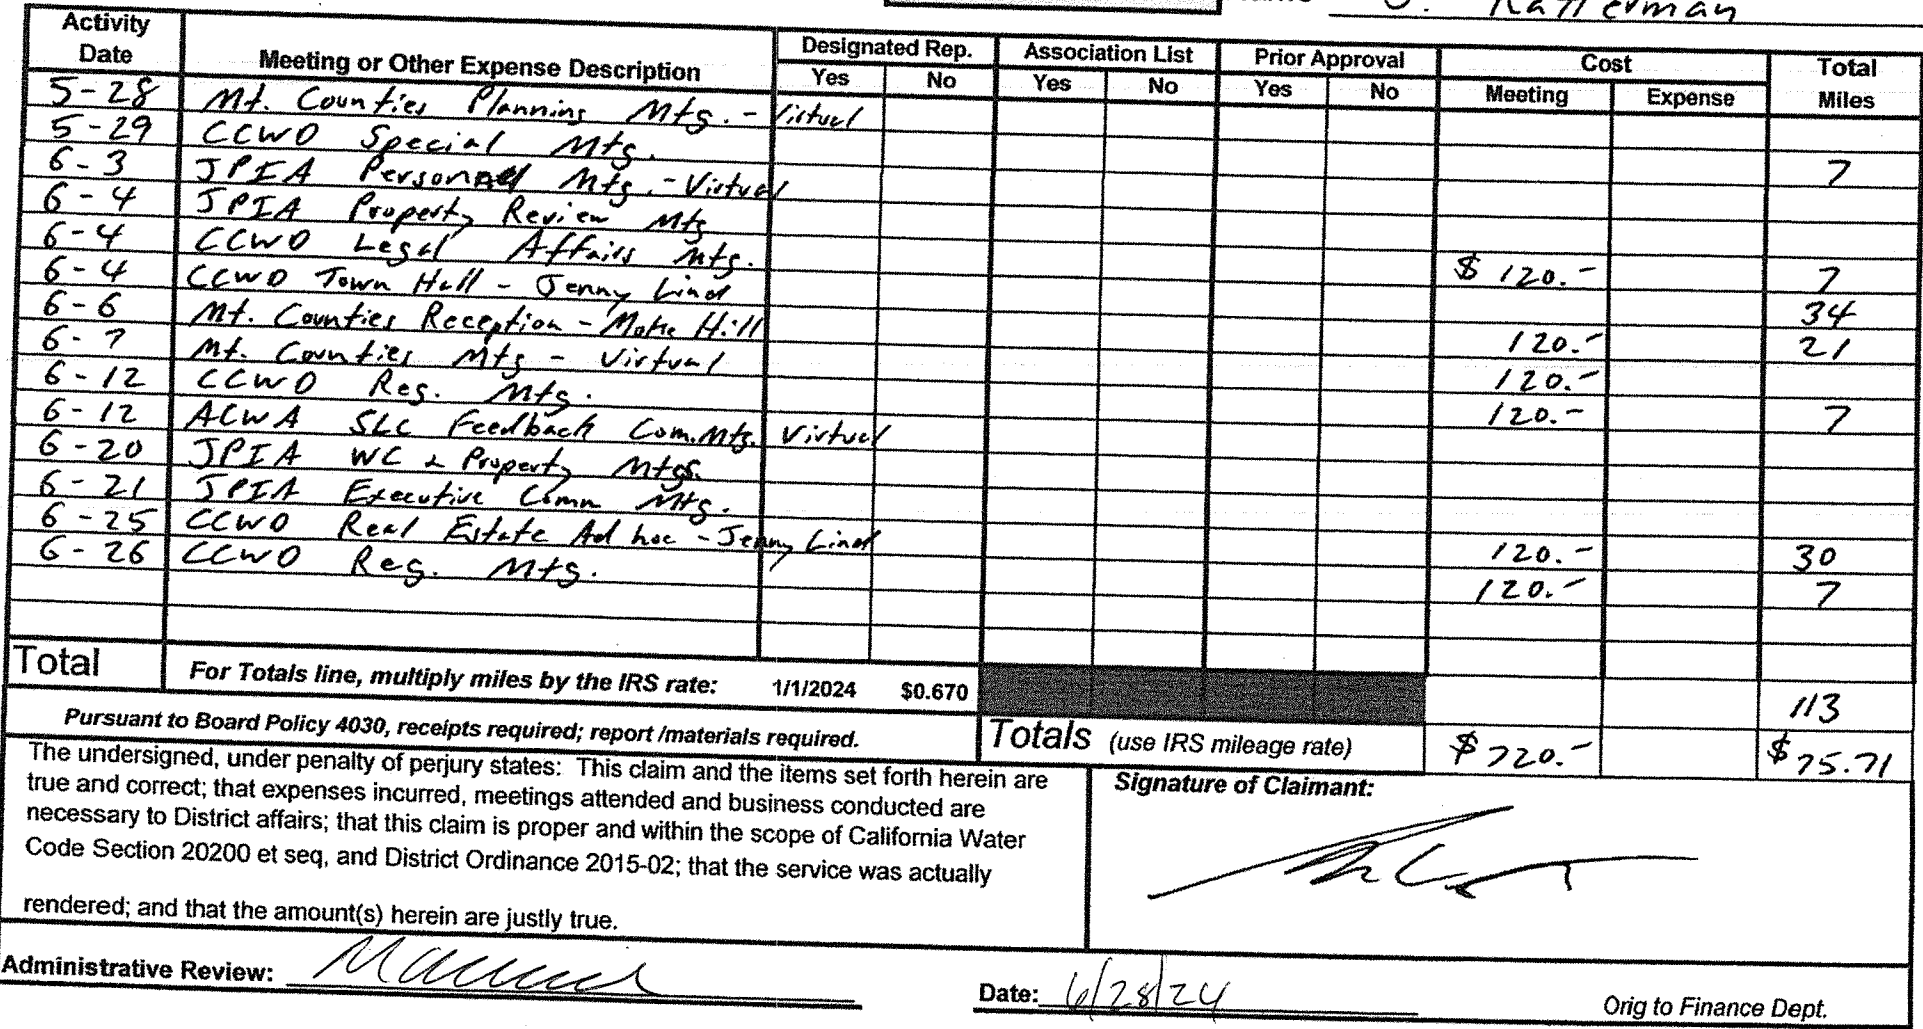 Ratterman
Activity Date Meeting or Other Expense Description Designated Rep. Yes No Association List Yes No Prior Approval Yes No Cost Meeting Expense Total Miles
5-28 Mt. Counties Planning Mtg. - Virtual
5-29 CCWD Special Mtg. 7
6-3 JPIA Personnel Mtg. - Virtual
6-4 JPIA Property Review Mtg
6-4 CCWD Legal Affairs Mtg. $ 120.- 7
6-4 CCWD Town Hall - Jenny Lind 34
6-6 Mt. Counties Reception - Moke Hill 120.- 21
6-7 Mt. Counties Mtg - Virtual 120.-
6-12 CCWD Reg. Mtg. 120.- 7
6-12 ACWA SLC Feedback Com. Mtg. Virtual
6-20 JPIA WC & Property Mtgs.
6-21 JPIA Executive Comm Mtg.
6-25 CCWD Real Estate Ad hoc - Jenny Lind 120.- 30
6-26 CCWD Reg. Mtg. 120.- 7
Total For Totals line, multiply miles by the IRS rate: 1/1/2024 $0.670 113
Pursuant to Board Policy 4030, receipts required; report /materials required. Totals (use IRS mileage rate) $ 720.- $ 75.71
The undersigned, under penalty of perjury states: This claim and the items set forth herein are
true and correct; that expenses incurred, meetings attended and business conducted are
necessary to District affairs; that this claim is proper and within the scope of California Water
Code Section 20200 et seq, and District Ordinance 2015-02; that the service was actually
rendered; and that the amount(s) herein are justly true.
Signature of Claimant:
Administrative Review:
Date: 6/28/24
Orig to Finance Dept.